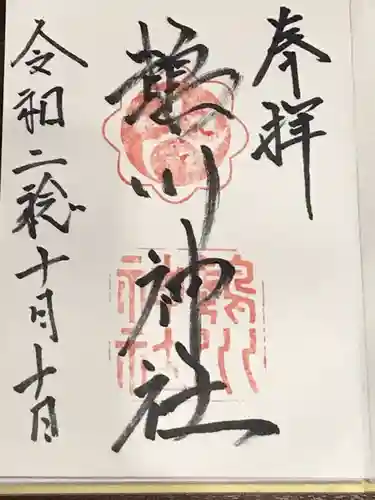 奉拝
川神社
令和二稔十月十日